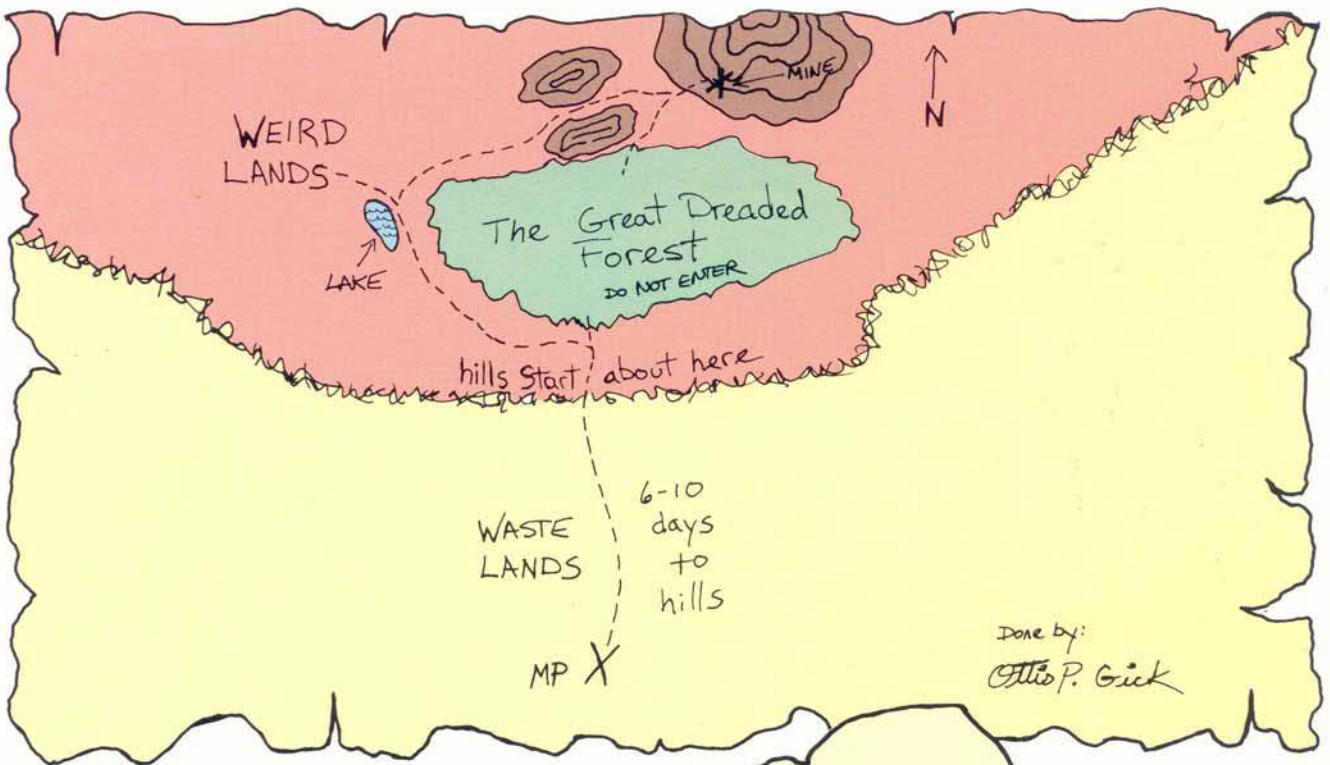 MINE
N
WEIRD
LANDS
The Great Dreaded
Forest
DO NOT ENTER
LAKE
hills start about here
6-10
days
to
hills
WASTE
LANDS
MP X
Done by:
Ottis P. Gick